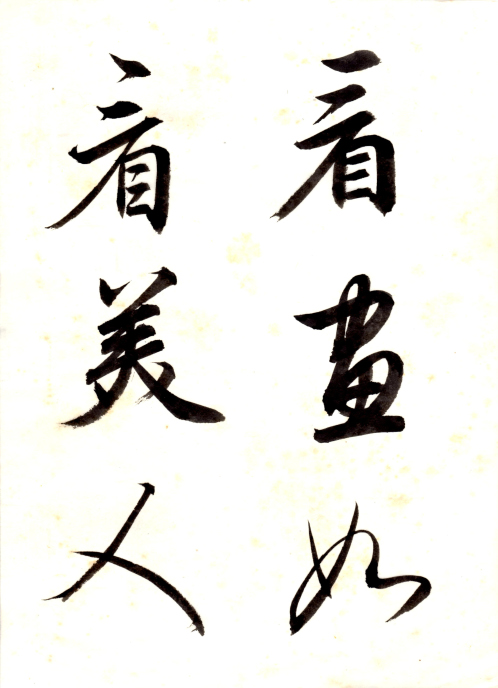 看畫如
看美人